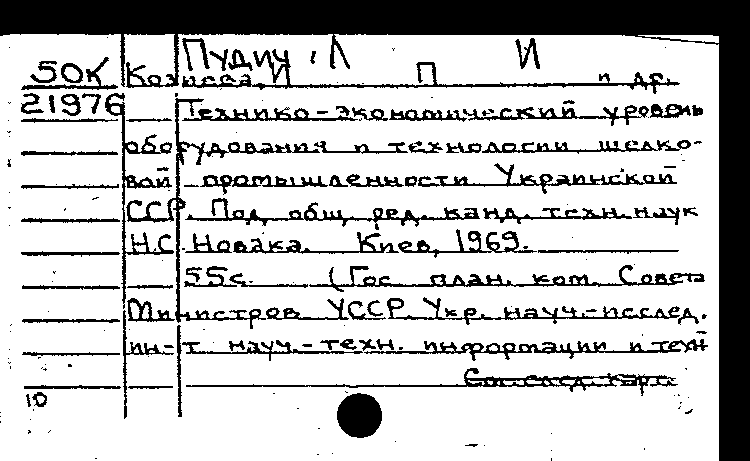 Пудич, Л И
50К Козырева, И П и др.
21976 Технико-экономический уровень
оборудования и технологии шелко-
вой промышленности Украинской
ССР. Под общ. ред. канд. техн. наук
Н.С. Новака. Киев, 1969.
55с. (Гос план. ком. Совета
Министров УССР. Укр. науч.-исслед.
ин-т науч.-техн. информации и техн
См. след. карт.
10